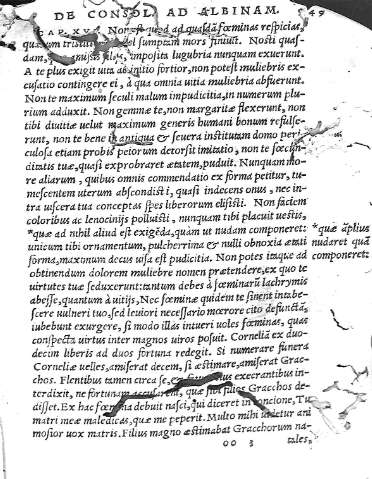 DE CONSOL. AD ALBINAM. 549
CAP. XV. Non est quod ad quasdã fœminas respicias,
quarum tristitiã semel sumptam mors finiuit. Nosti quas-
dam, quæ amissis filijs, imposita lugubria nunquam exuerunt.
A te plus exigit uita ab initio fortior, non potest muliebris ex-
cusatio contingere ei, à qua omnia uitia muliebria abfuerunt.
Non te maximum seculi malum impudicitia, in numerum plu-
rium adduxit. Non gemmæ te, non margaritæ flexerunt, non
tibi diuitiæ uelut maximum generis humani bonum refulse-
runt, non te bene in antiqua & seuera institutam domo peri-
culosa etiam probis peiorum detorsit imitatio, non te fœcun
ditatis tuæ, quasi exprobraret ætatem, puduit. Nunquam mo-
re aliarum, quibus omnis commendatio ex forma petitur, tu-
mescentem uterum abscondisti, quasi indecens onus, nec in-
tra uiscera tua conceptas spes liberorum elisisti. Non faciem
coloribus ac lenocinijs polluisti, nunquam tibi placuit uestis,
*quæ ad nihil aliud est exigẽda, quàm ut nudam componeret:
unicum tibi ornamentum, pulcherrima & nulli obnoxia ætati
forma, maxımum decus uisa est pudicitia. Non potes itaque ad
obtinendum dolorem muliebre nomen prætendere, ex quo te
uirtutes tuæ seduxerunt: tantum debes à fœminarũ lachrymis
abesse, quantum à uitijs. Nec fœminæ quidem te sinent intabe-
scere uulneri tuo, sed leuiori necessario mœrore cito defunctã,
iubebunt exurgere, si modo illas intueri uoles fœminas, quas
conspecta uirtus inter magnos uiros posuit. Corneliã ex duo-
decim liberis ad duos fortuna redegit. Si numerare funera
Corneliæ uelles, amiserat decem, si æstimare, amiserat Grac-
chos. Flentibus tamen circa se, & fatum eius execrantibus in-
terdixit, ne fortunam accusarent, quæ sibi filios Gracchos de-
disset. Ex hac fœmina debuit nasci, qui diceret in concione, Tu
matri meæ maledicas, quæ me peperit. Multo mihi uidetur ani
mosior uox matris. Filius magno æstimabat Gracchorum na-
oo 3 tales,
*quæ ãplius
nudaret quã
componeret: